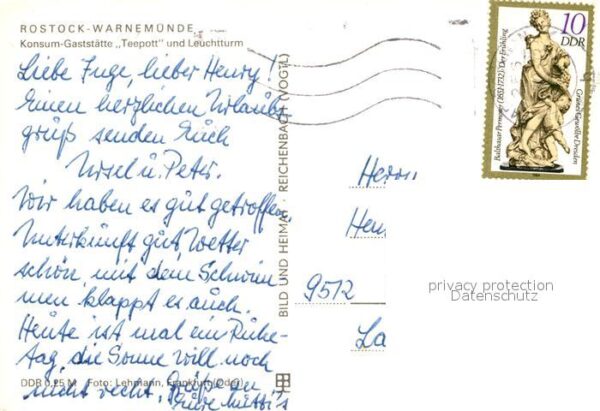 ROSTOCK-WARNEMÜNDE
Konsum-Gaststätte „Teepott" und Leuchtturm
Liebe Inge, lieber Henry!
Einen herzlichen Urlaubs
gruß senden Euch
Ursel u. Peter.
Wir haben es gut getroffen,
Unterkunft gut, Wetter
schön, mit dem Schwim
men klappt es auch.
Heute ist mal ein Ruhe-
tag, die Sonne will noch
nicht recht. Grüße an
Eure
DDR 0,25 M Foto: Lehmann, Frankfurt (Oder)
BILD UND HEIMAT · REICHENBACH (VOGTL)
10
DDR
Balthasar Permoser (1651-1732) Der Frühling
Grünes Gewölbe Dresden
1984
Herrn
Hen
9512
La
privacy protection
Datenschutz